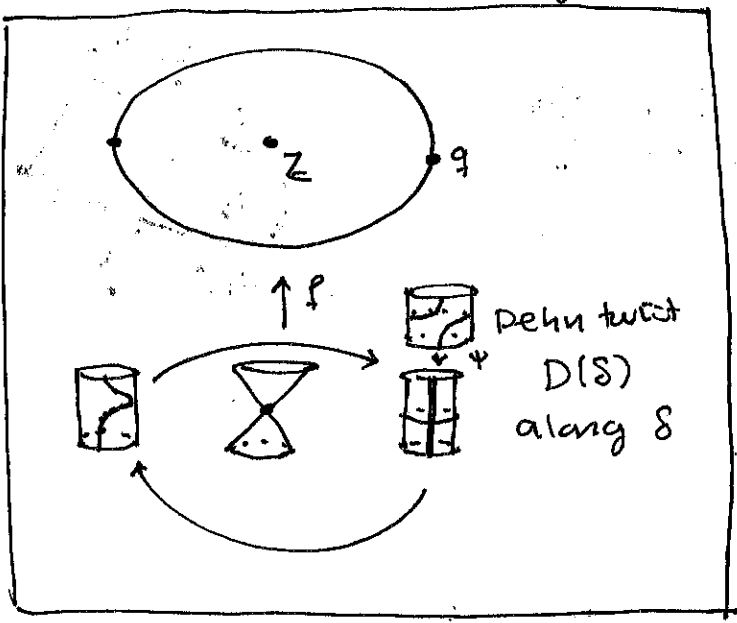 Z q
f
Dehn twist
ψ
D(δ)
along δ